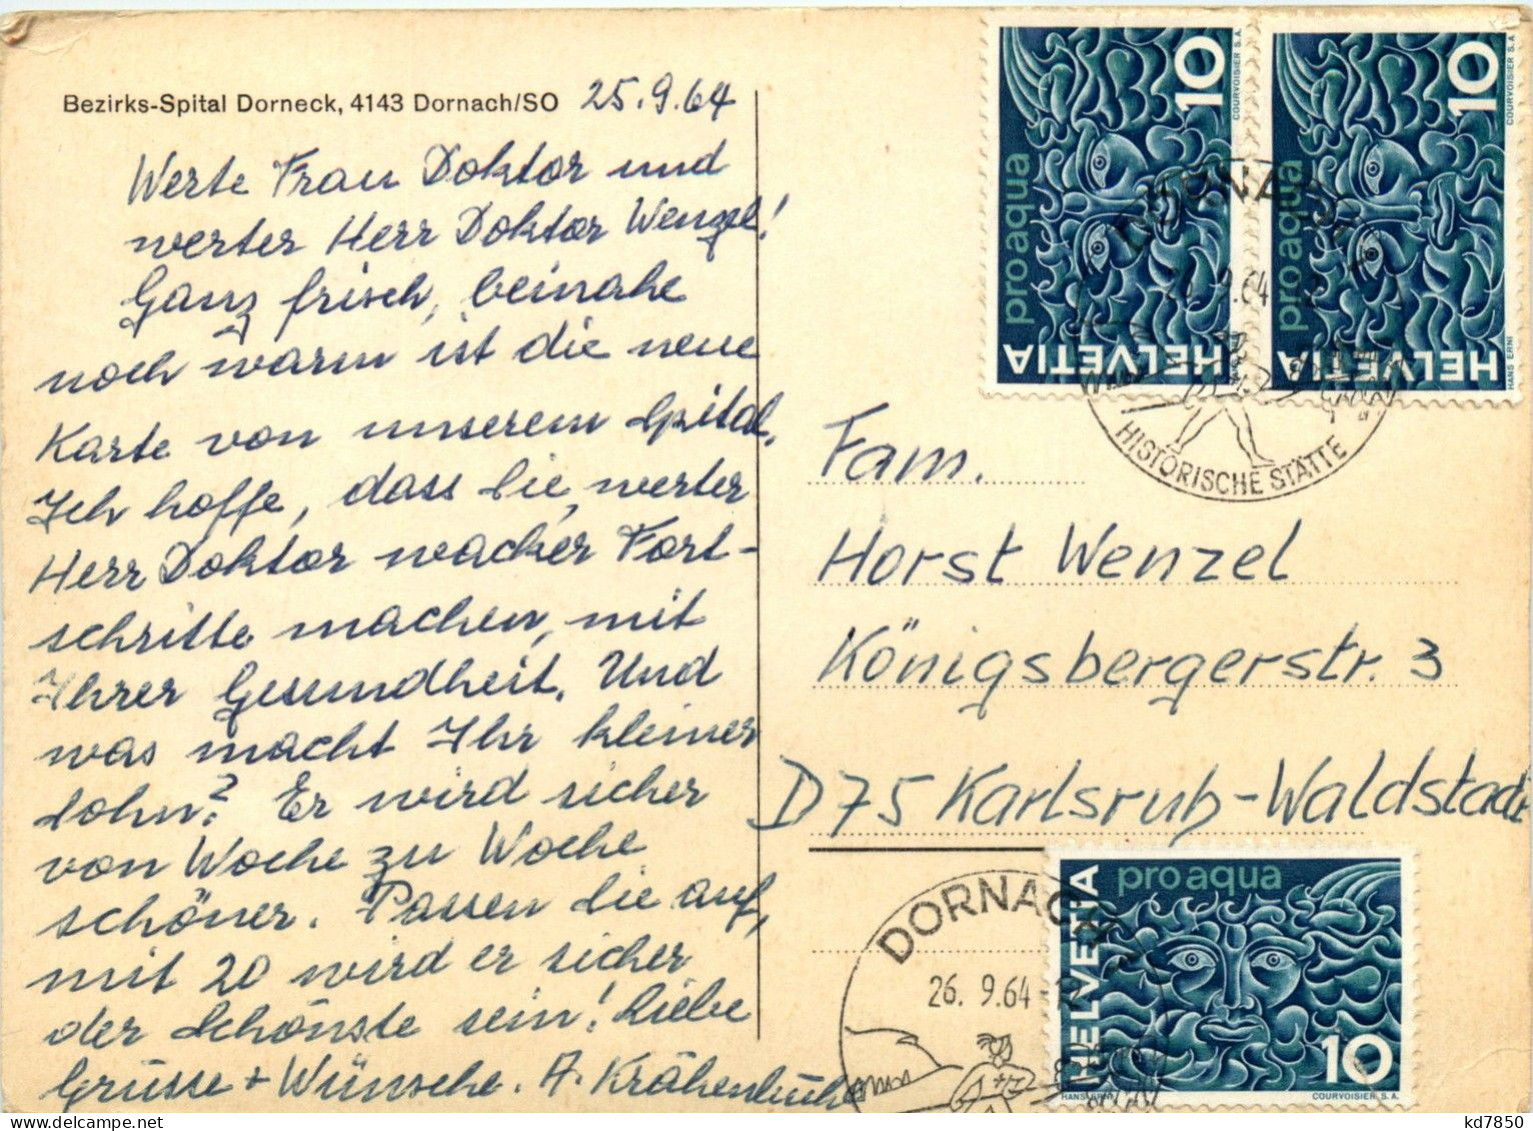 Bezirks-Spital Dorneck, 4143 Dornach/SO 25.9.64
Werte Frau Doktor und
werter Herr Doktor Wenzel!
Ganz frisch, beinahe
noch warm ist die neue
Karte von unserem Spital.
Ich hoffe, dass Sie, werter
Herr Doktor wacker Fort-
schritte machen, mit
Ihrer Gesundheit. Und
was macht Ihr kleiner
Sohn? Er wird sicher
von Woche zu Woche
schöner. Passen Sie auf,
mit 20 wird er sicher
der Schönste sein! Liebe
Grüsse + Wünsche. A. Krähenbühl
10
HELVETIA
pro aqua
COURVOISIER S.A.
10
HELVETIA
pro aqua
COURVOISIER S.A.
HANS ERNI
DORNACH
26. 9.64
HISTORISCHE STÄTTE
Fam.
Horst Wenzel
Königsbergerstr. 3
D 75 Karlsruh-Waldstadt
DORNACH
26. 9.64-12
pro aqua
HELVETIA
10
HANS ERNI
COURVOISIER S.A.
kd7850